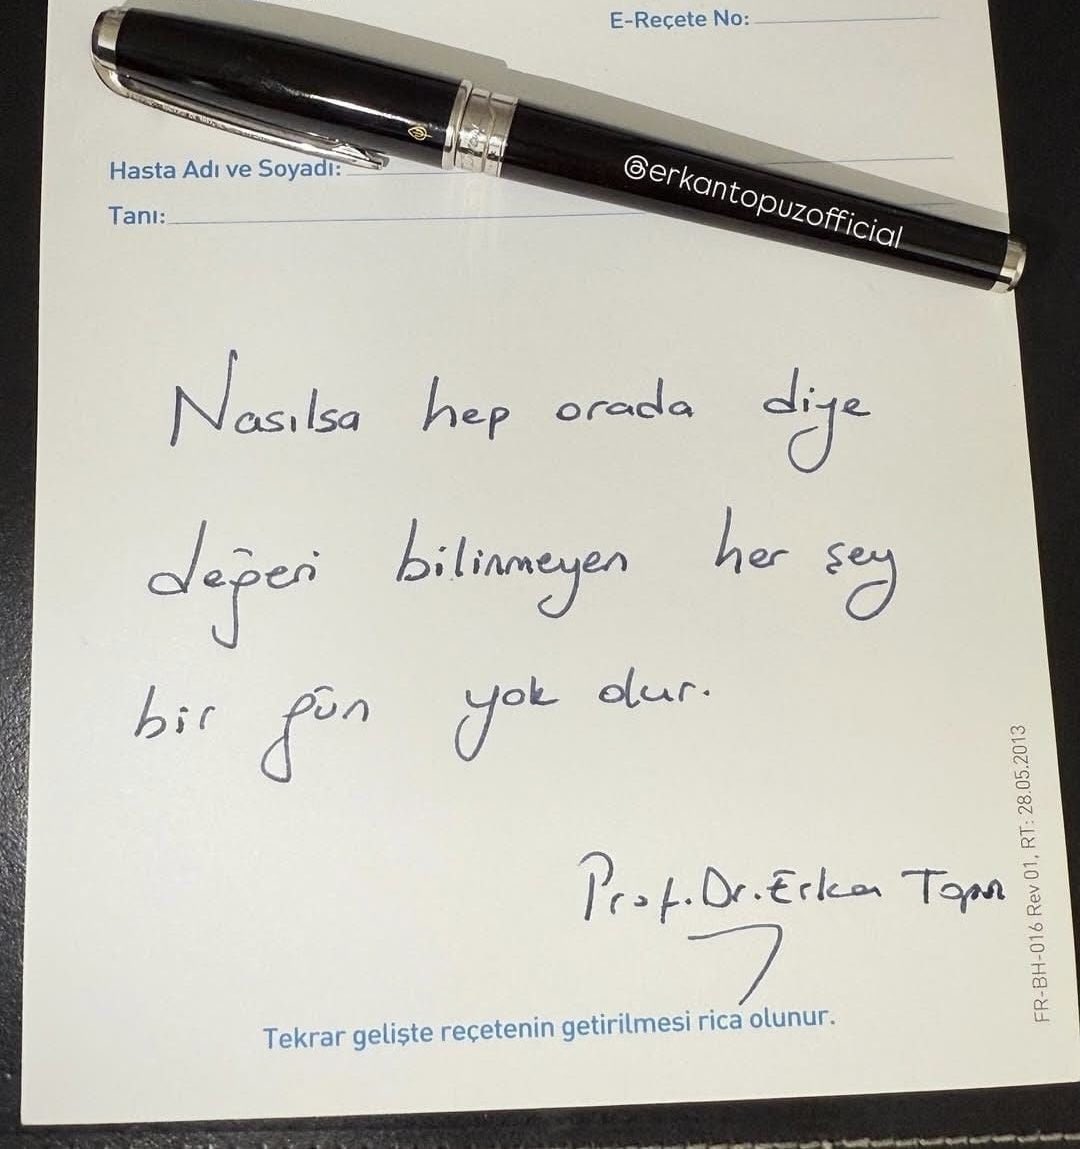 E-Reçete No:
Hasta Adı ve Soyadı:
Tanı:
@erkantopuzofficial
Nasılsa hep orada diye
değeri bilinmeyen her şey
bir gün yok olur.
Prof. Dr. Erkan Topuz
Tekrar gelişte reçetenin getirilmesi rica olunur.
FR-BH-016 Rev 01, RT: 28.05.2013